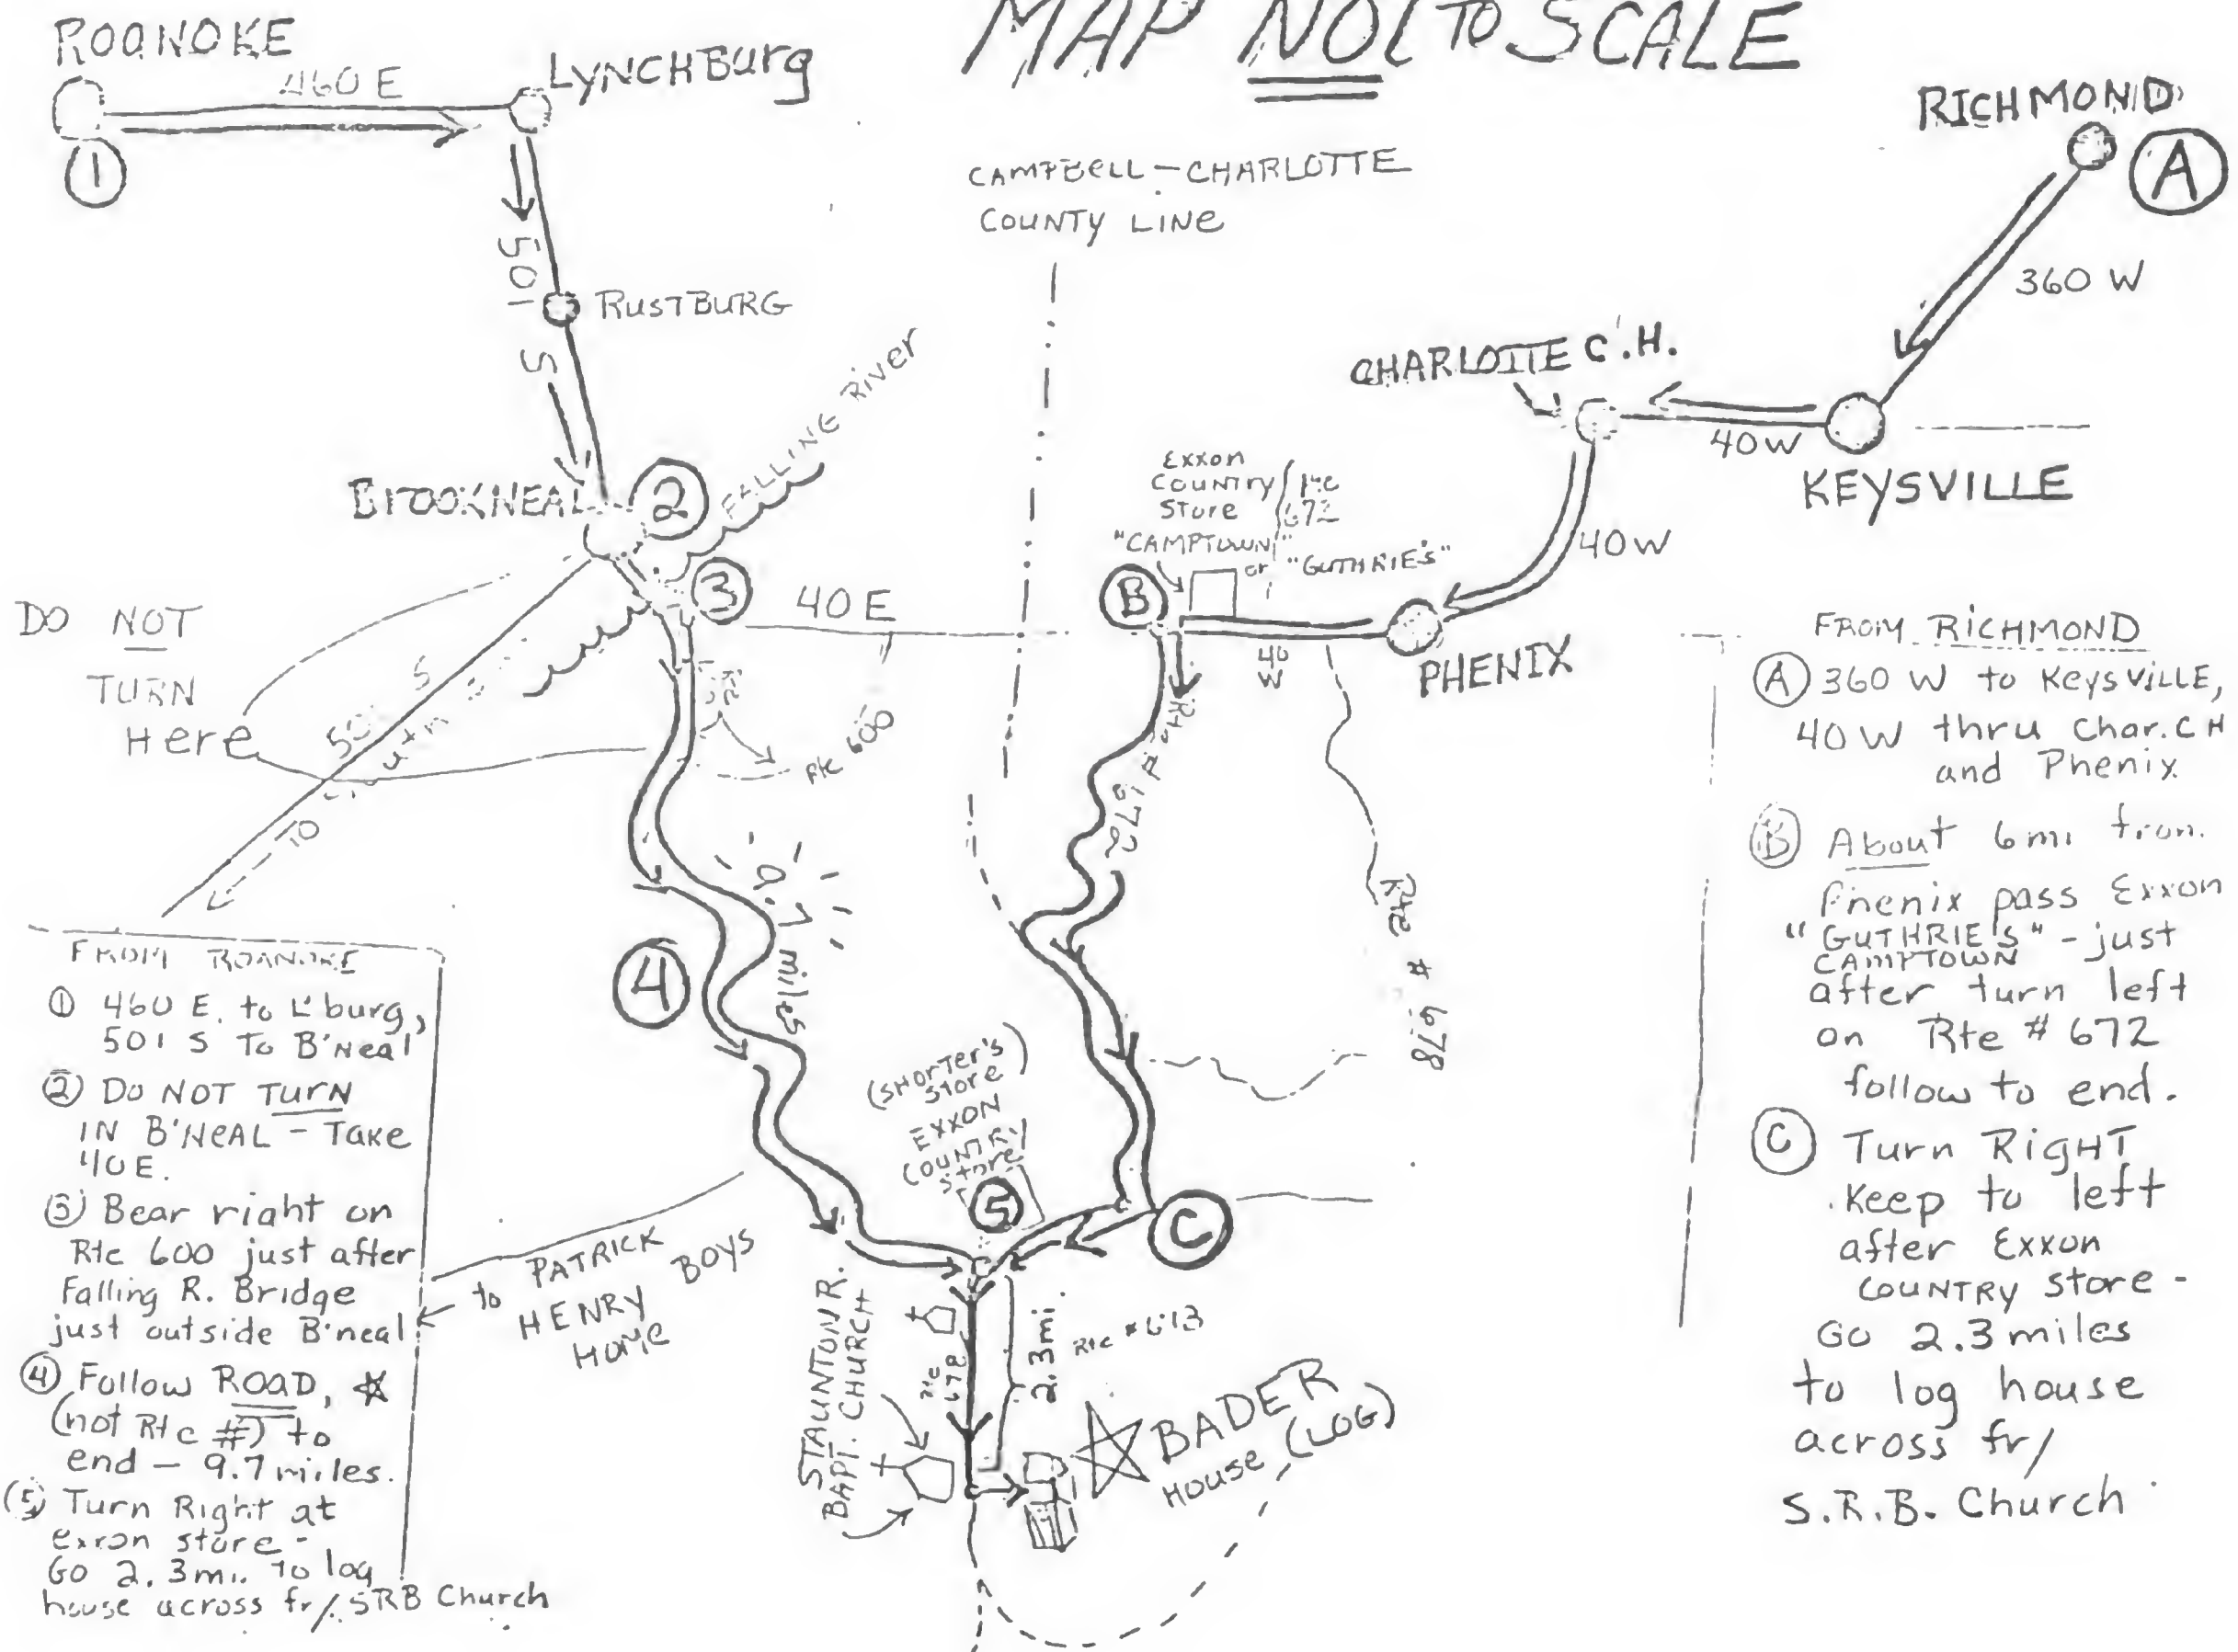 MAP NOT TO SCALE
ROANOKE
460 E
LYNCHBURG
1
501
S
RUSTBURG
BROOKNEAL
2
FALLING River
3
40 E
DO NOT
TURN
Here
501 S
TO
Rte 600
9.7 miles
4
CAMPBELL - CHARLOTTE
COUNTY LINE
RICHMOND
A
360 W
CHARLOTTE C.H.
40W
KEYSVILLE
40W
Exxon
COUNTRY
Store
672
"CAMPTOWN"
or "GUTHRIE'S"
B
40
W
PHENIX
Rte # 672
Rte # 678
(SHORTER'S
Store)
EXXON
COUNTRY
Store
5
C
to PATRICK
HENRY BOYS
HOME
STAUNTON R.
BAPT. CHURCH
Rte
678
2.3 mi.
Rte #613
BADER
House (LOG)
FROM ROANOKE
① 460 E. to L'burg,
501 S To B'Neal
② DO NOT TURN
IN B'NEAL - Take
40E.
③ Bear right on
Rte 600 just after
Falling R. Bridge
just outside B'neal
④ Follow ROAD,
(not Rte #) to
end - 9.7 miles.
(5) Turn Right at
exxon store -
Go 2.3mi. To log
house across fr/. SRB Church
FROM RICHMOND
Ⓐ 360 W to Keysville,
40 W thru Char. C H
and Phenix.
Ⓑ About 6 mi from
Phenix pass Exxon
"GUTHRIE'S" - just
CAMPTOWN
after turn left
on Rte # 672
follow to end.
Ⓒ Turn RIGHT
Keep to left
after Exxon
COUNTRY store -
Go 2.3 miles
to log house
across fr/
S.R.B. Church